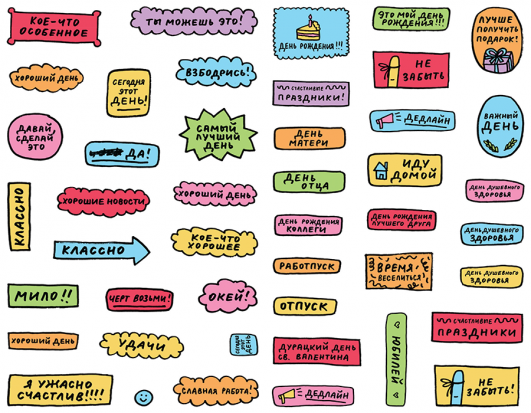 КОЕ-ЧТО
ОСОБЕННОЕ
ТЫ МОЖЕШЬ ЭТО!
ДЕНЬ РОЖДЕНИЯ!!!
ЭТО МОЙ ДЕНЬ
РОЖДЕНИЯ!!!
ЛУЧШЕ
ПОЛУЧИТЬ
ПОДАРОК!
ХОРОШИЙ ДЕНЬ
СЕГОДНЯ
ЭТОТ
ДЕНЬ!
ВЗБОДРИСЬ!
СЧАСТЛИВЫЕ
ПРАЗДНИКИ!
НЕ
ЗАБЫТЬ
ДАВАЙ,
СДЕЛАЙ
ЭТО
ДА!
САМЫЙ
ЛУЧШИЙ
ДЕНЬ
ДЕНЬ
МАТЕРИ
ДЕДЛАЙН
ВАЖНЫЙ
ДЕНЬ
КЛАССНО
ХОРОШИЕ НОВОСТИ
ХОРОШИЙ ДЕНЬ
ДЕНЬ
ОТЦА
ИДУ
ДОМОЙ
ДЕНЬ ДУШЕВНОГО
ЗДОРОВЬЯ
КЛАССНО
КОЕ-ЧТО
ХОРОШЕЕ
ДЕНЬ РОЖДЕНИЯ
КОЛЛЕГИ
ДЕНЬ РОЖДЕНИЯ
ЛУЧШЕГО ДРУГА
ДЕНЬ ДУШЕВНОГО
ЗДОРОВЬЯ
МИЛО!!
ЧЕРТ ВОЗЬМИ!
ОКЕЙ!
РАБОТПУСК
ВРЕМЯ
ВЕСЕЛИТЬСЯ!
ДЕНЬ ДУШЕВНОГО
ЗДОРОВЬЯ
ОТПУСК
ХОРОШИЙ ДЕНЬ
УДАЧИ
СЕГОДНЯ
ЭТОТ
ДЕНЬ
ДУРАЦКИЙ ДЕНЬ
СВ. ВАЛЕНТИНА
ЮБИЛЕЙ
СЧАСТЛИВЫЕ
ПРАЗДНИКИ
Я УЖАСНО
СЧАСТЛИВ!!!!
СЛАВНАЯ РАБОТА!
ДЕДЛАЙН
НЕ
ЗАБЫТЬ!